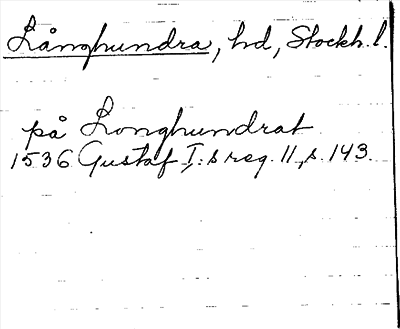 Långhundra, hd, Stockh. l.
på Longhundrat
1536 Gustaf I:s reg. 11, s. 143.